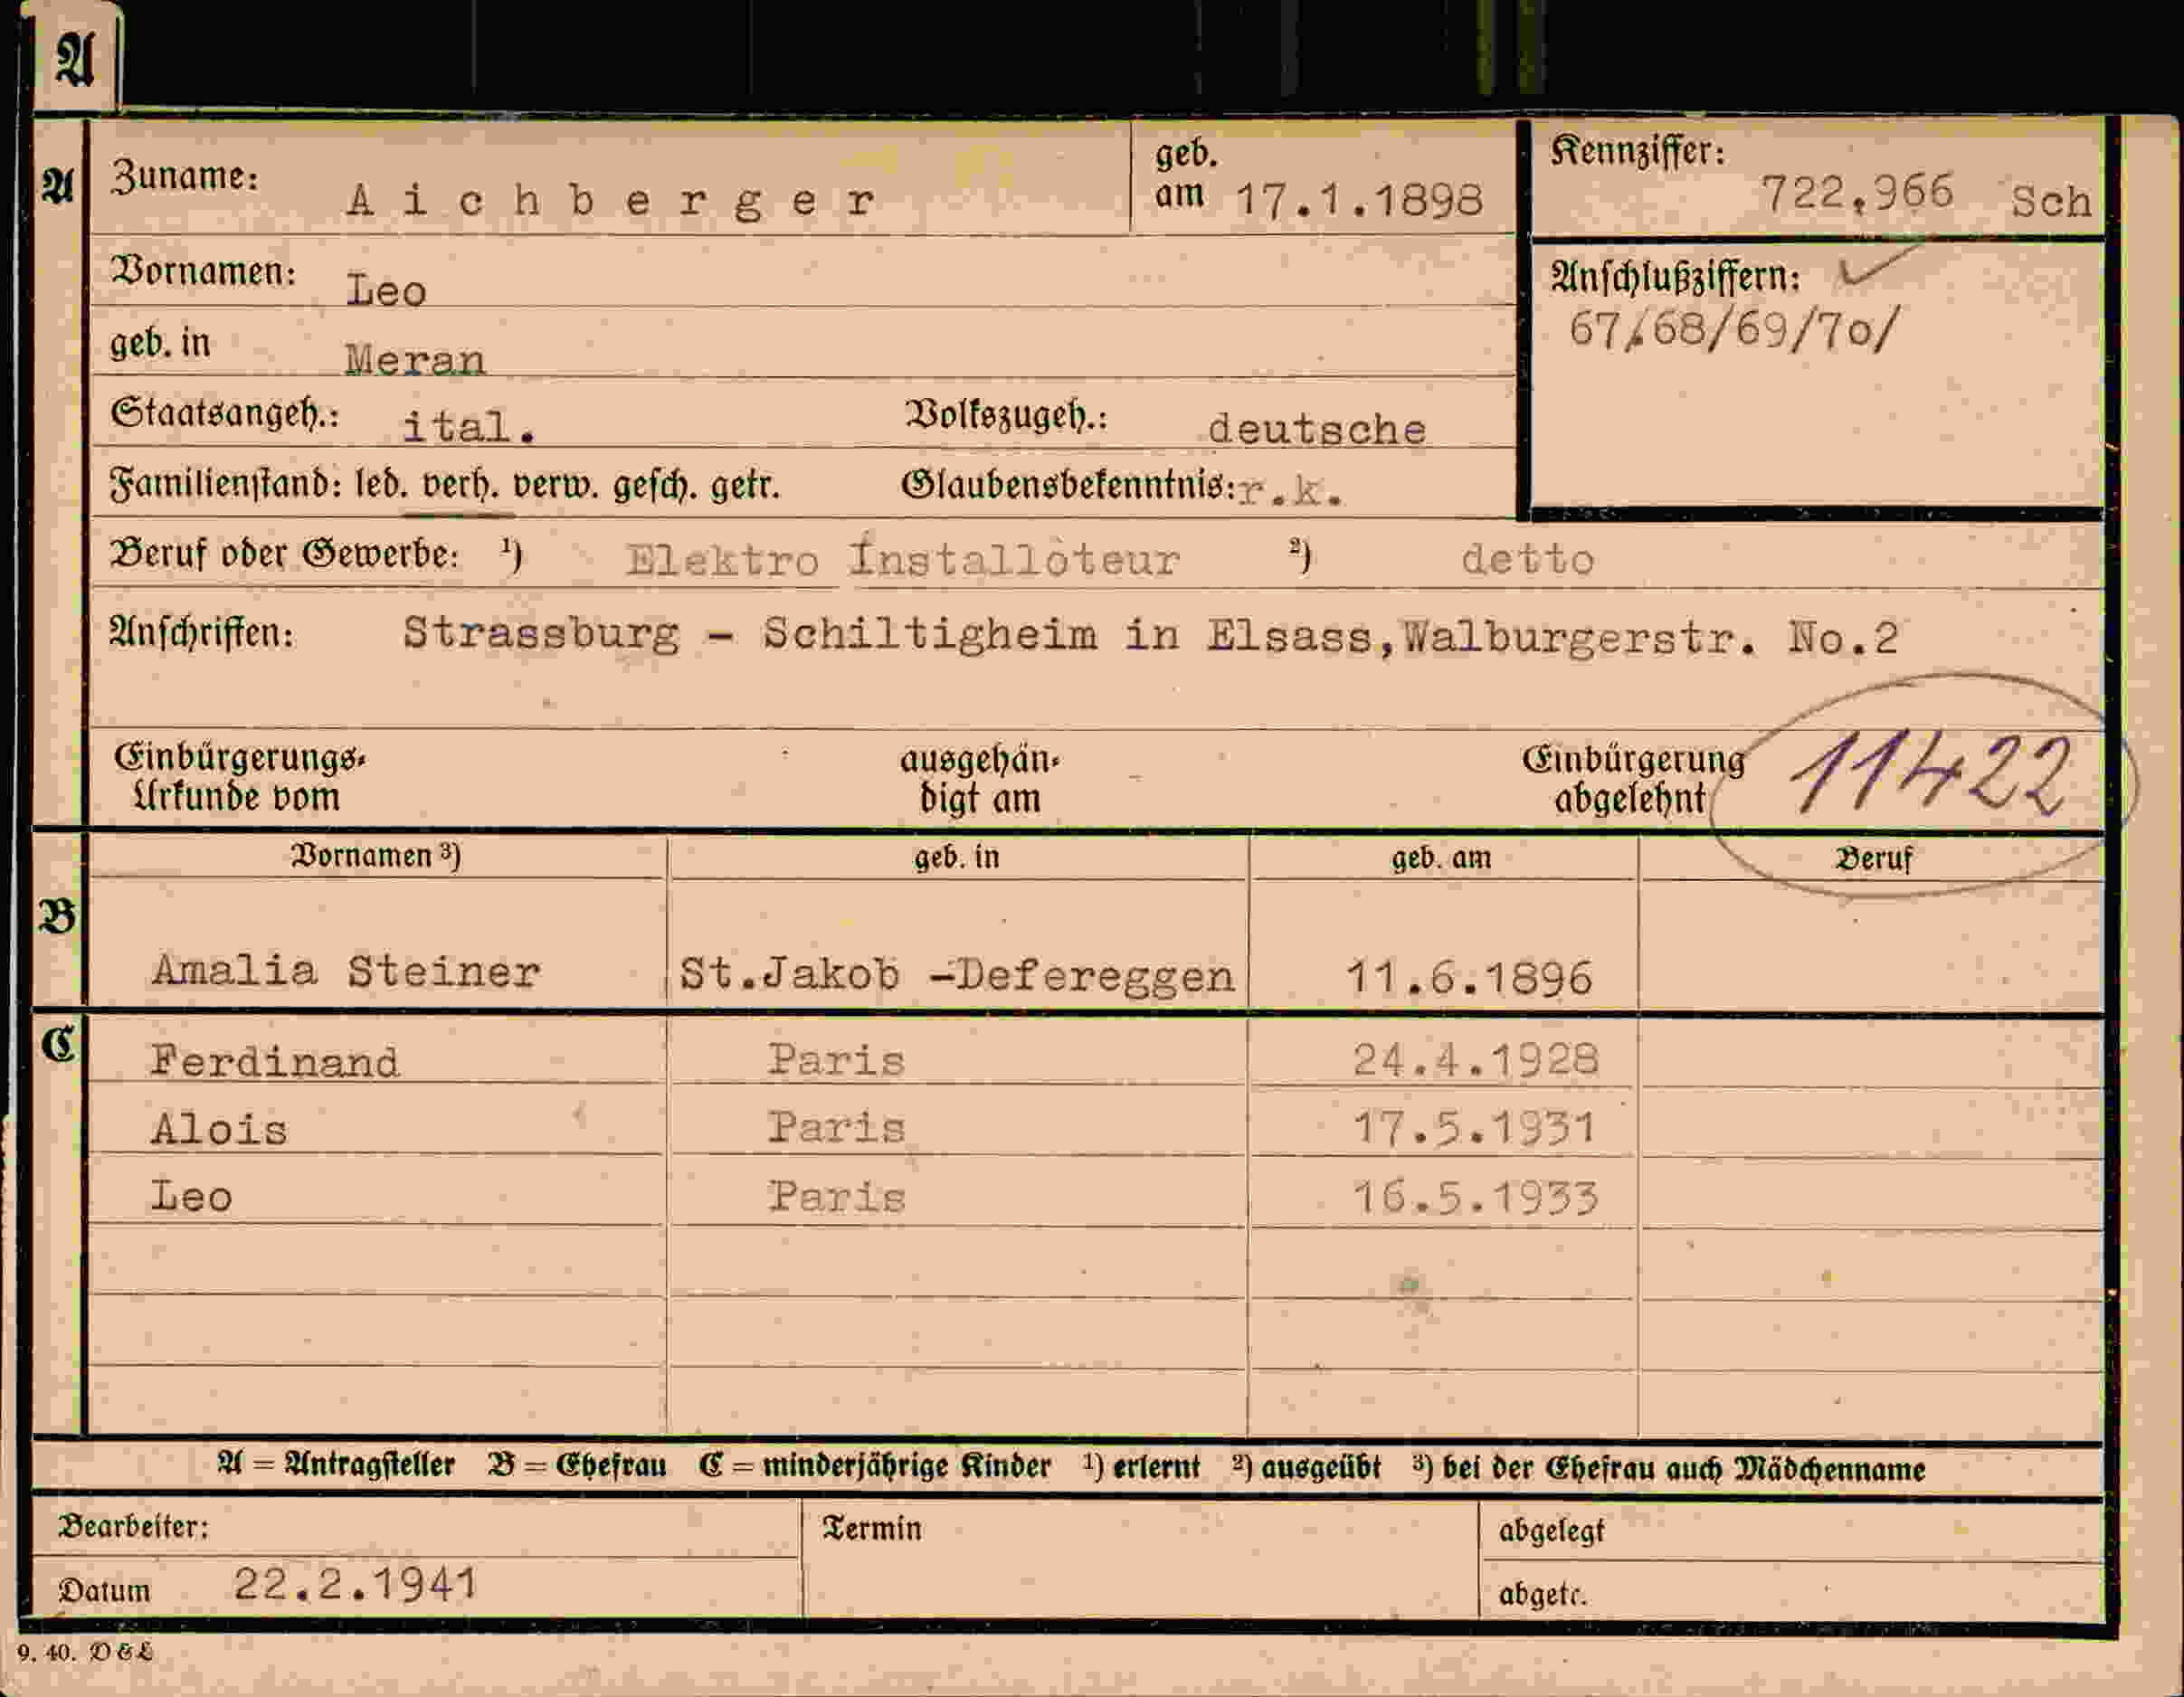 A
A Zuname: Aichberger geb. am 17.1.1898 Kennziffer: 722,966 Sch
Vornamen: Leo Anschlußziffern: ✓
67/68/69/7o/
geb. in Meran
Staatsangeh.: ital. Volkszugeh.: deutsche
Familienstand: led. verh. verw. gesch. getr. Glaubensbekenntnis: r.k.
Beruf oder Gewerbe: ¹) Elektro Installoteur ²) detto
Anschriften: Strassburg - Schiltigheim in Elsass,Walburgerstr. No.2
Einbürgerungs- ausgehän- Einbürgerung 11422
Urkunde vom digt am abgelehnt
Vornamen ³) geb. in geb. am Beruf
B
Amalia Steiner St.Jakob -Defereggen 11.6.1896
C Ferdinand Paris 24.4.1928
Alois Paris 17.5.1931
Leo Paris 16.5.1933
A = Antragsteller B = Ehefrau C = minderjährige Kinder ¹) erlernt ²) ausgeübt ³) bei der Ehefrau auch Mädchenname
Bearbeiter: Termin abgelegt
Datum 22.2.1941 abgetr.
9. 40. D & L